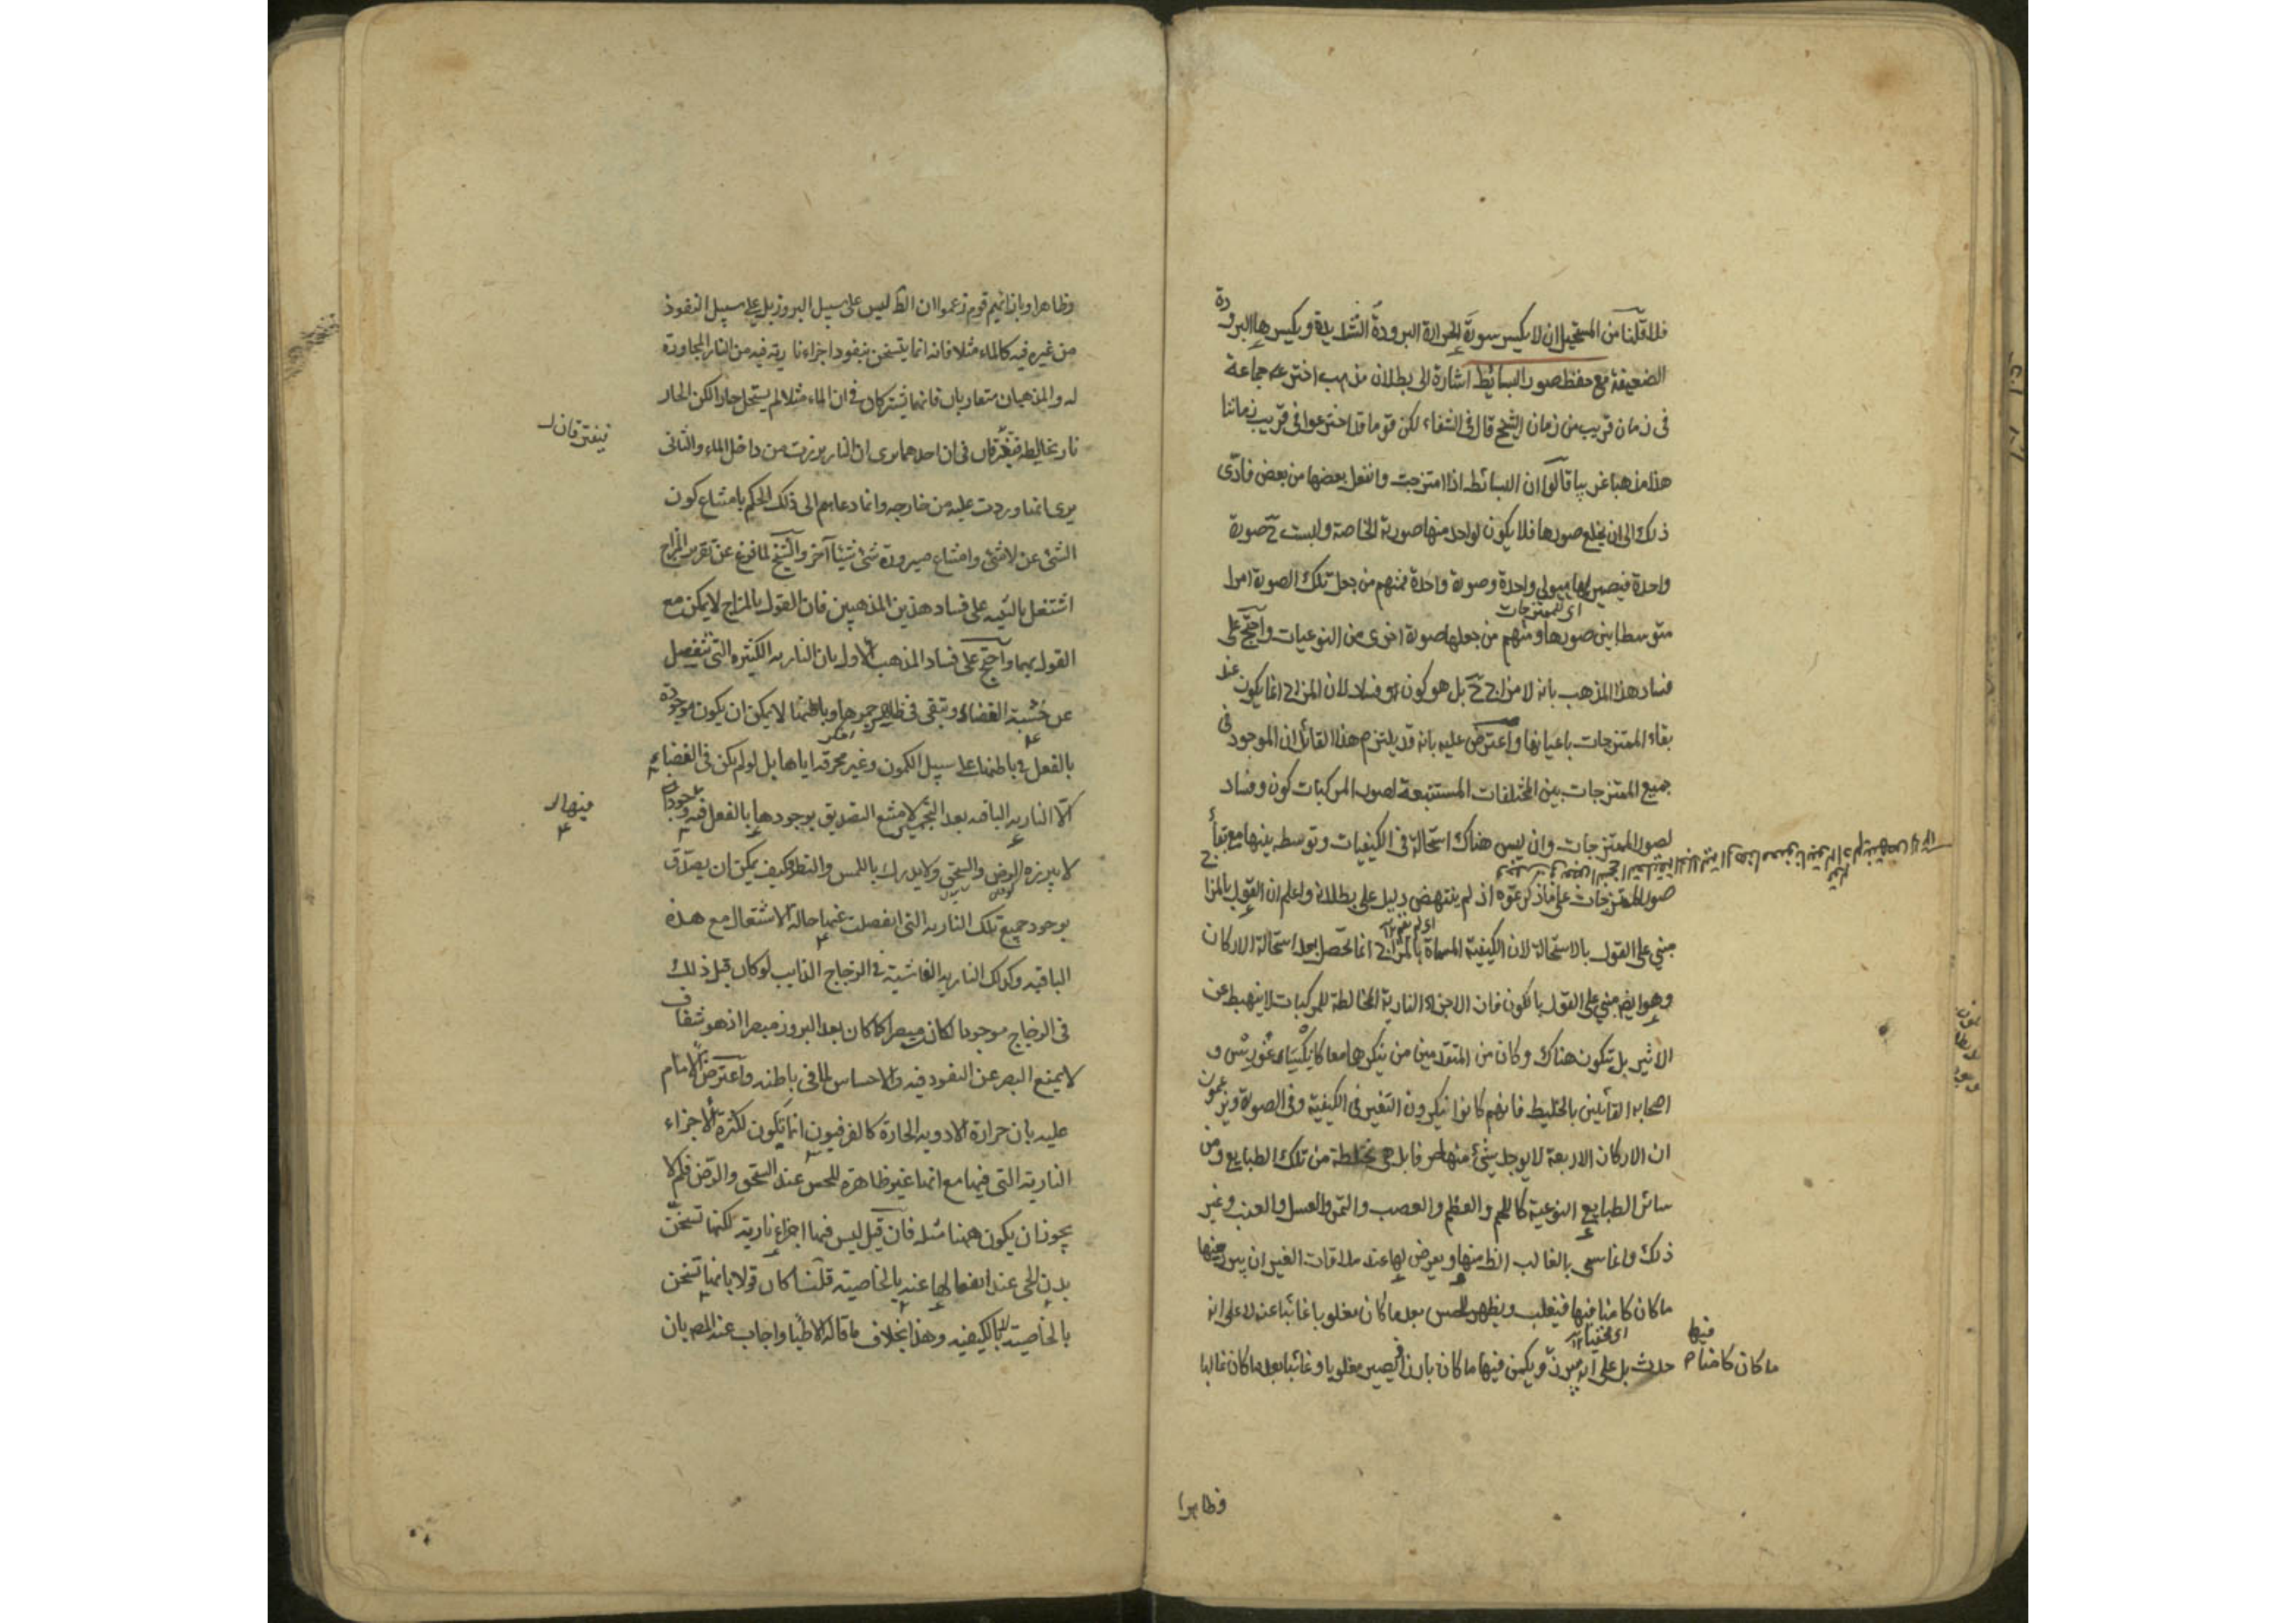 فلا قلنا من المستحيل ان لا يكسر سورة الحرارة البرودة الشديدة ويكسرها البرودة
الضعيفة مع حفظ صور البسائط اشارة الى بطلان مذهب اخترعه جماعة
فى زمان قريب من زمان الشيخ قال فى الشفاء لكن قوما قد اخترعوا فى قريب زماننا
هذا مذهبا غريبا قالوا ان البسائط اذا امتزجت وانفعل بعضها من بعض فادّى
ذلك الى ان يخلع صورها فلا يكون لواحد منها صورته الخاصة ولبست ح صورة
واحدة فيصير لها هيولى واحدة وصورة واحدة فمنهم من جعل تلك الصورة امرا
اى للممتزجات
متوسطا بين صورها ومنهم من جعلها صورة اخرى من النوعيات واحتج على
فساد هذا المذهب بانه لا مزاج ح بل هو كون او فساد لان المزاج انما يكون عند
بقاء الممتزجات باعيانها واعترض عليه بانه قد يلتزم هذا القائل ان الموجود فى
جميع الممتزجات بين المختلفات المستتبعة لصور المركبات كون وفساد
لصور الممتزجات وان ليس هناك استحالة فى الكيفيات وتوسط بينها مع بقاء
صور الممتزجات على ما ذكرتموه اذ لم ينتهض دليل على بطلانه واعلم ان القول بالمزاج
مبنى على القول بالاستحالة لان الكيفية المسماة بالمزاج انما تحصل بعد استحالة الاركان
وهو ايضا مبنى على القول بالكون فان الاجزاء النارية المخالطة للمركبات لا يهبط عن
الاثير بل يتكون هناك وكان من المتقدمين من ينكرهما معا كانكسياغورس و
اصحابه القائلين بالخليط فانهم كانوا ينكرون التغير فى الكيفية وفى الصورة ويزعمون
ان الاركان الاربعة لا يوجد شئ منها صرفا بل هى مختلطة من تلك الطبايع ومن
سائر الطبايع النوعية كاللحم والعظم والعصب والتمر والعسل والعنب وغير
ذلك وانما سمى بالغالب الظ منها ويعرض لها عند ملاقات الغير ان يبرز منها
ما كان كامنا فيها فيغلب ويظهر للحس بعد ما كان مغلوبا غائبا عنه لا على انه
فيها
ما كان كامنا
حدث بل على انه برز ويكمن فيها ما كان بارزا فيصير مغلوبا وغائبا بعد ما كان غالبا
وظاهرا
وظاهرا وبازائهم قوم زعموا ان الظ ليس على سبيل البروز بل على سبيل النفوذ
من غيره فيه كالماء مثلا فانه انما يتسخن بنفوذ اجزاء نارية فيه من النار المجاورة
له والمذهبان متقاربان فانهما يشتركان فى ان الماء مثلا لم يستحل حارا لكن الحار
نار يخالطه فيفترقان فى ان احدهما يرى ان النار برزت من داخل الماء والثانى
فيفترقان
يرى انها وردت عليه من خارجه وانما دعاهم الى ذلك الحكم بامتناع كون
الشئ عن لا شئ وامتناع صيرورة شئ شيئا آخر والشيخ لما فرغ عن تقرير المزاج
اشتغل بالتنبيه على فساد هذين المذهبين فان القول بالمزاج لا يمكن مع
القول بهما واحتج على فساد المذهب الاول بان النارية الكثيرة التى تنفصل
عن خشبة الغضاء وتبقى فى ظاهر جمرها وباطنها لا يمكن ان يكون موجودة
بالفعل فى باطنها على سبيل الكمون وغير محرقة اياها بل لو لم يكن فى الغضاء
الّا النارية الباقية بعد التجمير لامتنع التصديق بوجودها بالفعل فيه
منها
لا يبرزه الرض والسحق ولا يدرك باللمس والنظر وكيف يمكن ان يصدّق
بوجود جميع تلك النارية التى انفصلت عنها حالة الاشتعال مع هذه
الباقية وكذلك النارية الفاشية فى الزجاج الذايب لو كان قبل ذلك
فى الزجاج موجودا لكان مبصرا كما كان بعد البروز مبصرا اذ هو شفاف
لا يمنع البصر عن النفوذ فيه والاحساس لما فى باطنه واعترض الامام
عليه بان حرارة الادوية الحارة كالفرفيون انما تكون لكثرة الاجزاء
النارية التى فيها مع انها غير ظاهرة للحس عند السحق والرض فلم لا
يجوز ان يكون ههنا مثله فان قيل ليس فيها اجزاء نارية لكنها تسخن
بدن الحى عند انفعالها عنه بالخاصية قلنا كان قولا بانها تسخن
بالخاصية لا بالكيفية وهذا بخلاف ما قاله الاطبا واجاب عنه المص بان